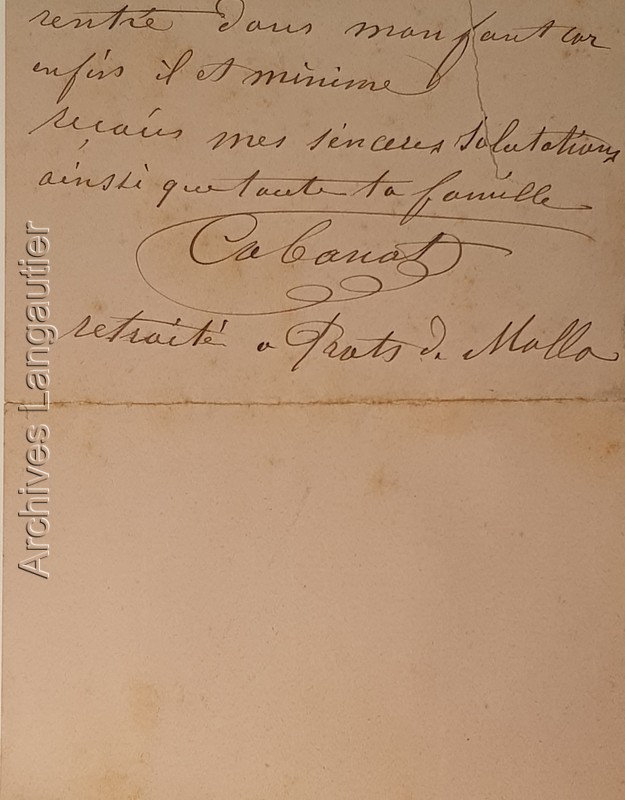 rentré dans mon font car
enfin il et minime
reçois mes sénceres salutations
ainssi que toute ta famille
Cabanat
retraité a Prats de Mollo
Archives Langautier